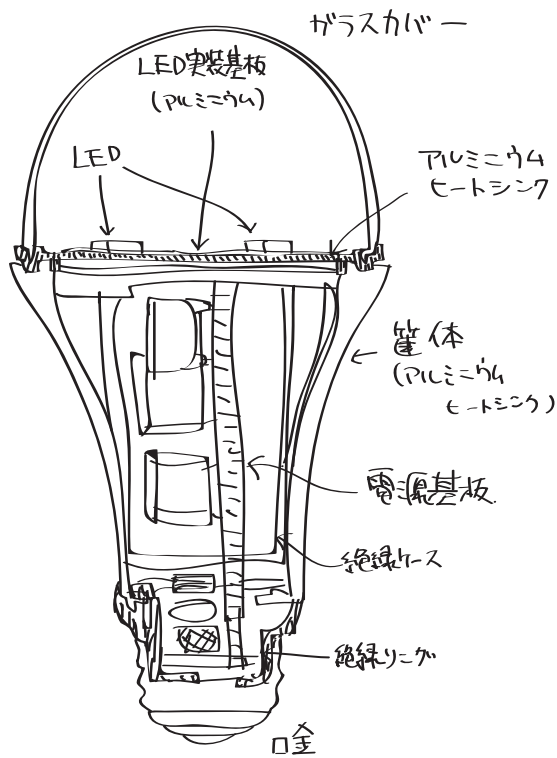 ガラスカバー
LED実装基板
(アルミニウム)
LED
アルミニウム
ヒートシンク
筐体
(アルミニウム
ヒートシンク)
電源基板
絶縁ケース
絶縁リング
口金